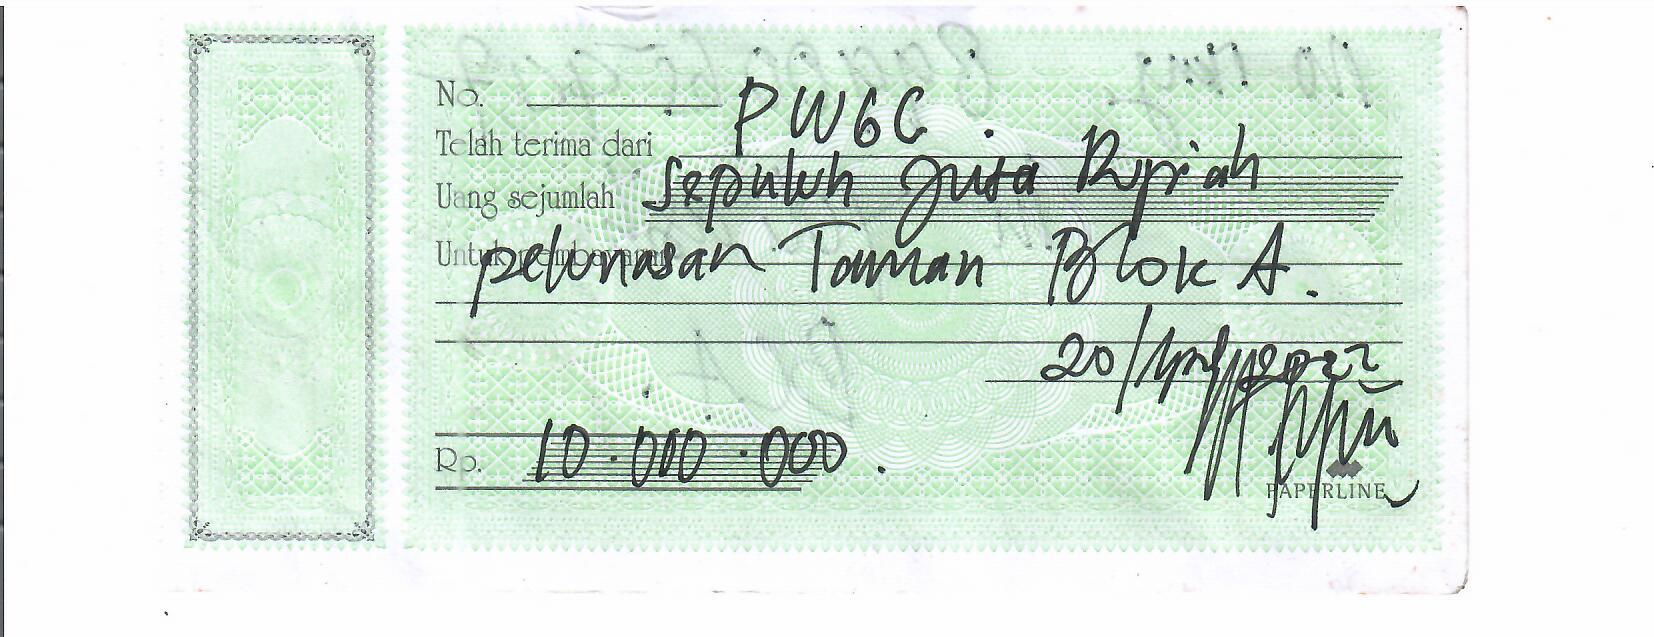 No. PW6C.
Telah terima dari
Uang sejumlah Sepuluh juta Rupiah
Untuk pembayaran pelunasan Taman Blok A.
20/
Rp. 10.000.000.
PAPERLINE